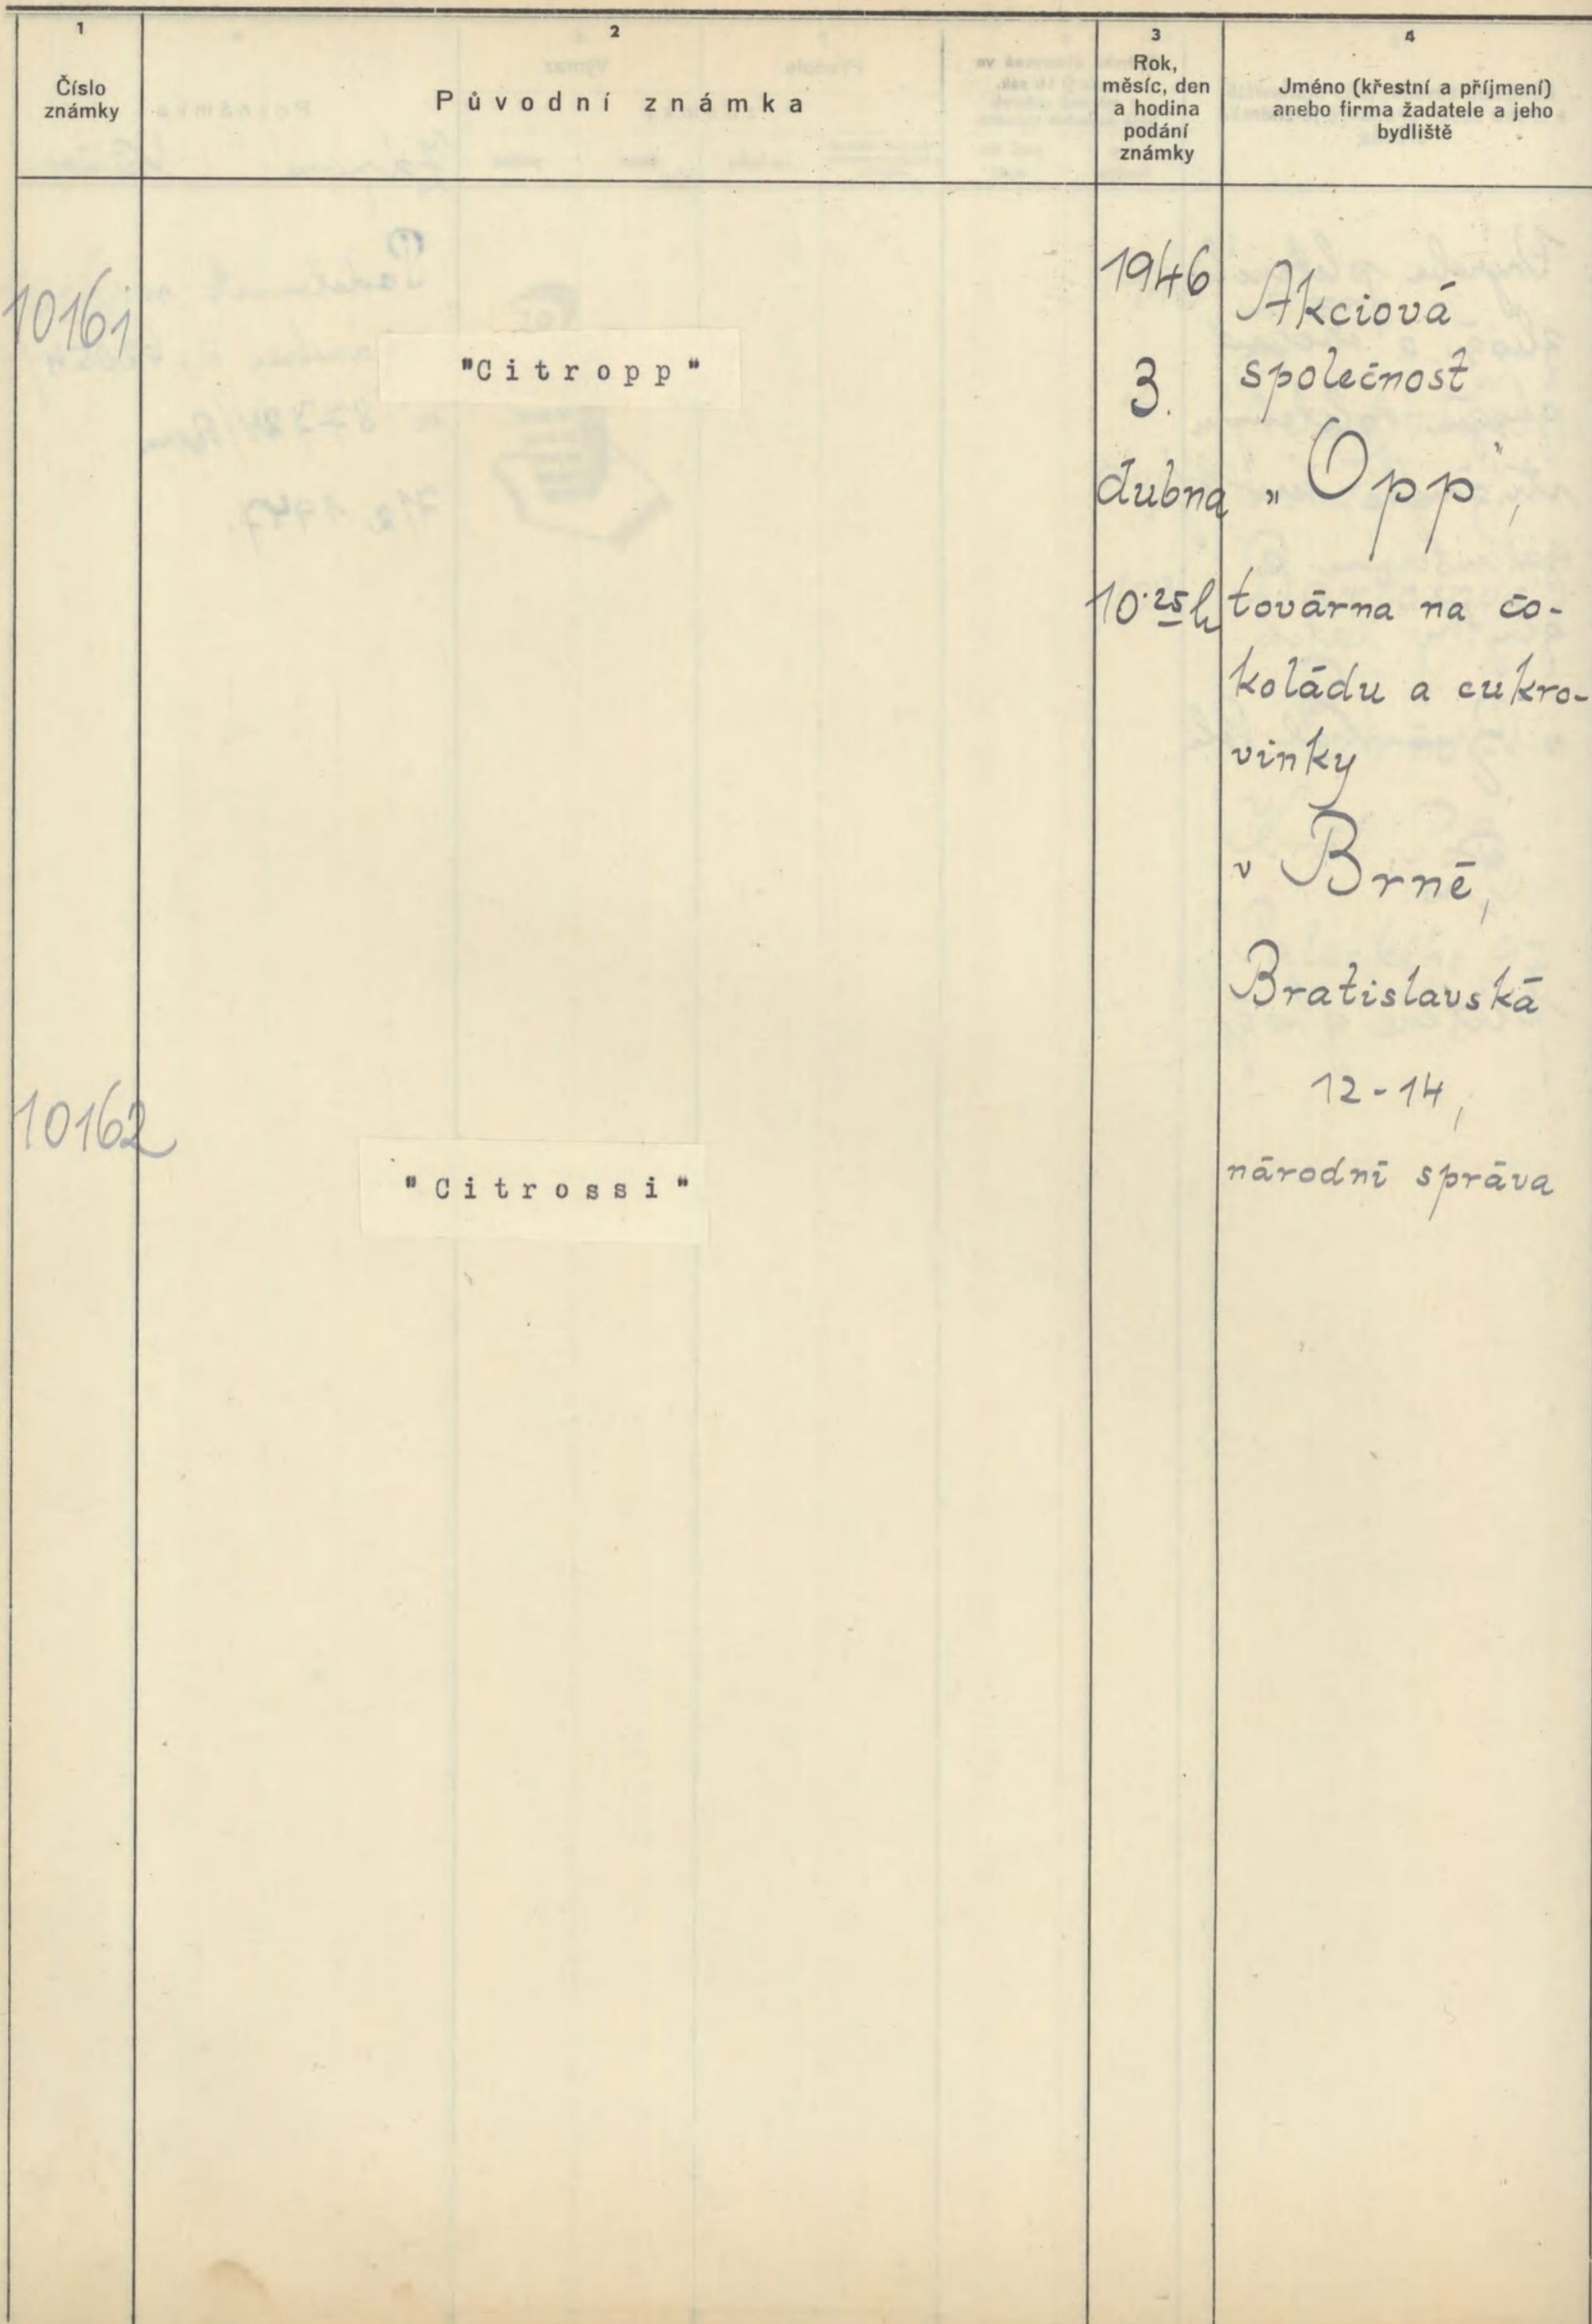 1
Číslo
známky
2
Původní známka
3
Rok,
měsíc, den
a hodina
podání
známky
4
Jméno (křestní a příjmení)
anebo firma žadatele a jeho
bydliště
10161
"Citropp"
1946
3.
dubna
10·25 h
Akciová
společnost
„Opp",
továrna na čo-
koládu a cukro-
vinky
v Brně,
Bratislavská
12-14,
národní správa
10162
"Citrossi"